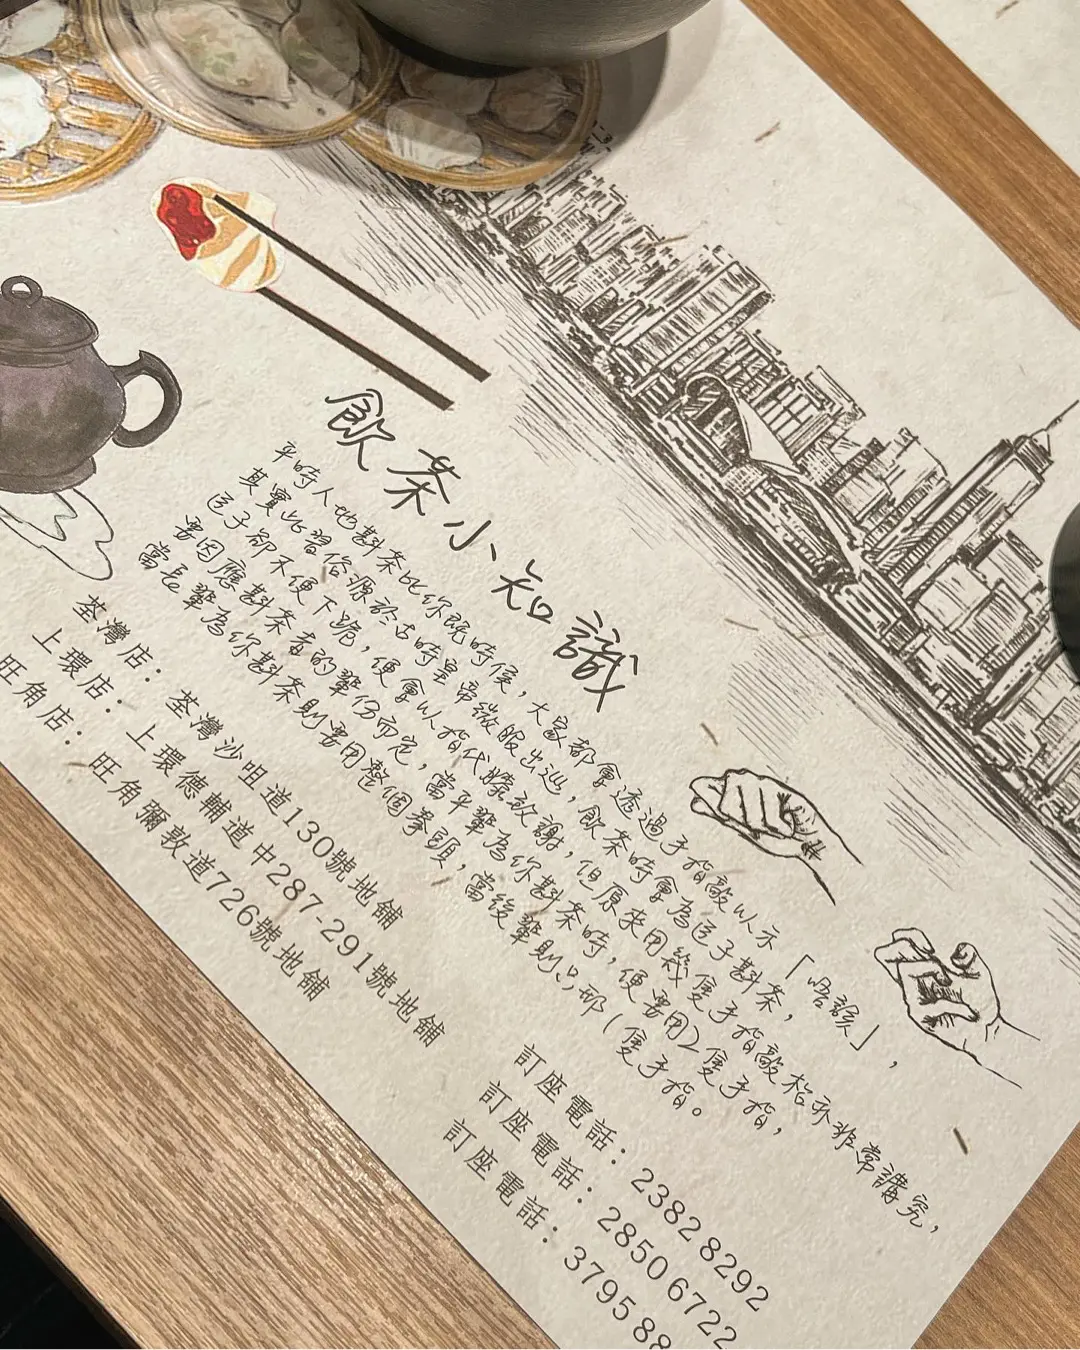 飲茶小知識
平時人地斟茶比你既時侯，大家都會透過手指敲以示「唔該」，
其實此習俗源於古時皇帝微服出巡，飲茶時會為臣子斟茶，
臣子卻不便下跪，便會以指代膝敬謝，但原來用幾隻手指敲枱亦非常講究，
要因應斟茶者的輩份而定，當平輩為你斟茶時，便要用2隻手指，
當長輩為你斟茶則要用整個拳頭，當後輩則只用1隻手指。
荃灣店：荃灣沙咀道130號地舖
訂座電話：23828292
上環店：上環德輔道中287-291號地舖
訂座電話：28506722
旺角店：旺角彌敦道726號地舖
訂座電話：379588